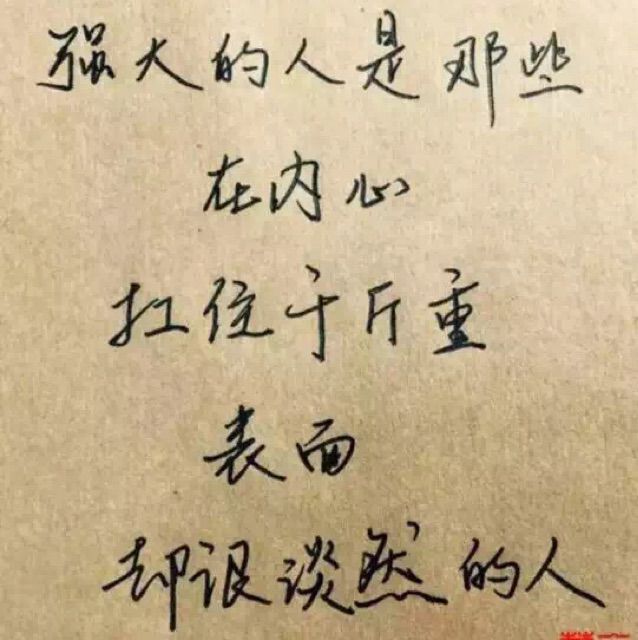 强大的人是那些
在内心
扛住千斤重
表面
却很淡然的人